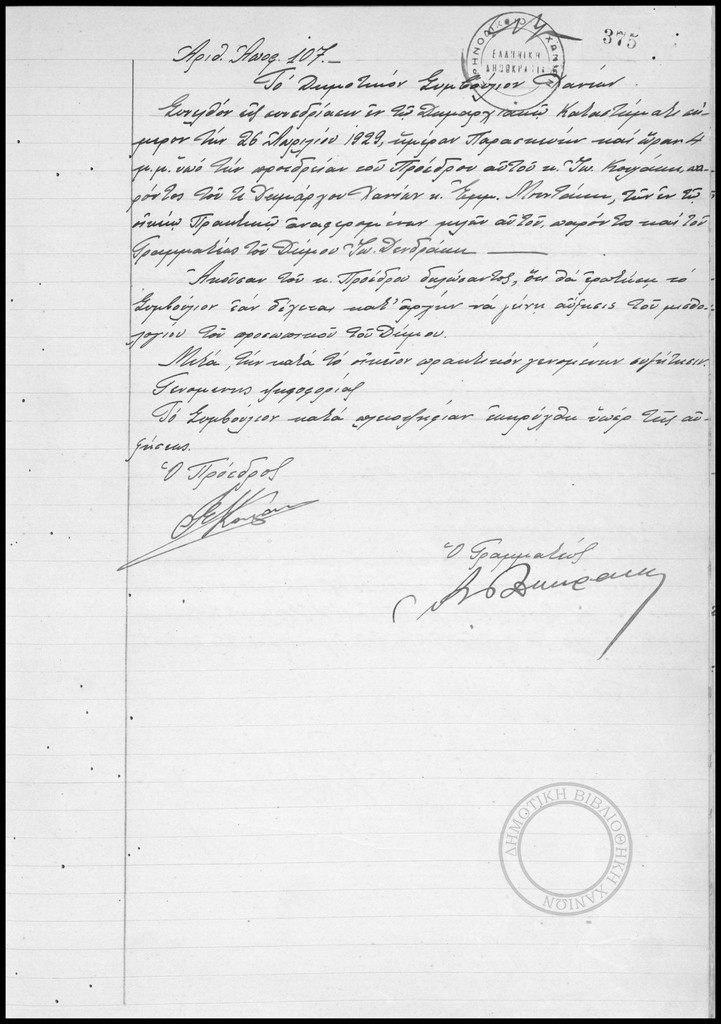 375
ΕΙΡΗΝΟΔΙΚΕΙΟ ΧΑΝΙΩΝ
ΕΛΛΗΝΙΚΗ
ΔΗΜΟΚΡΑΤΙΑ
Αριθ. Αποφ. 107.-
Τό Δημοτικόν Συμβούλιον Χανίων
Συνελθόν εἰς συνεδρίασιν ἐν τῷ Δημαρχιακῷ Καταστήματι σή-
μερον τήν 26 Απριλίου 1929, ἡμέραν Παρασκευήν καί ὥραν 4
μ.μ. ὑπό τήν προεδρείαν τοῦ Προέδρου αὐτοῦ κ. Ἰω. πα-
ρόντος τοῦ κ Δημάρχου Χανίων κ. Ἐμμ. Μουντάκη, τῶν ἐν τῷ
οἰκείῳ Πρακτικῷ ἀναφερομένων μελῶν αὐτοῦ, παρόντος καί τοῦ
Γραμματέως τοῦ Δήμου Ἰω. Δενδράκη
Ἀκοῦσαν τοῦ κ. Προέδρου δηλώσαντος, ὅτι θά ἐρωτήσῃ τό
Συμβούλιον ἐάν δέχεται κατ' ἀρχήν νά γίνῃ αὔξησις τοῦ μισθο-
λογίου τοῦ προσωπικοῦ τοῦ Δήμου.
Μετά, τήν κατά τό οἰκεῖον πρακτικόν γενομένην συζήτησιν.
Γενομένης ψηφοφορίας
Τό Συμβούλιον κατά πλειοψηφίαν ἐκηρύχθη ὑπέρ τῆς αὐ-
ξήσεως.
Ὁ Πρόεδρος
Ὁ Γραμματεύς
ΔΗΜΟΤΙΚΗ ΒΙΒΛΙΟΘΗΚΗ ΧΑΝΙΩΝ